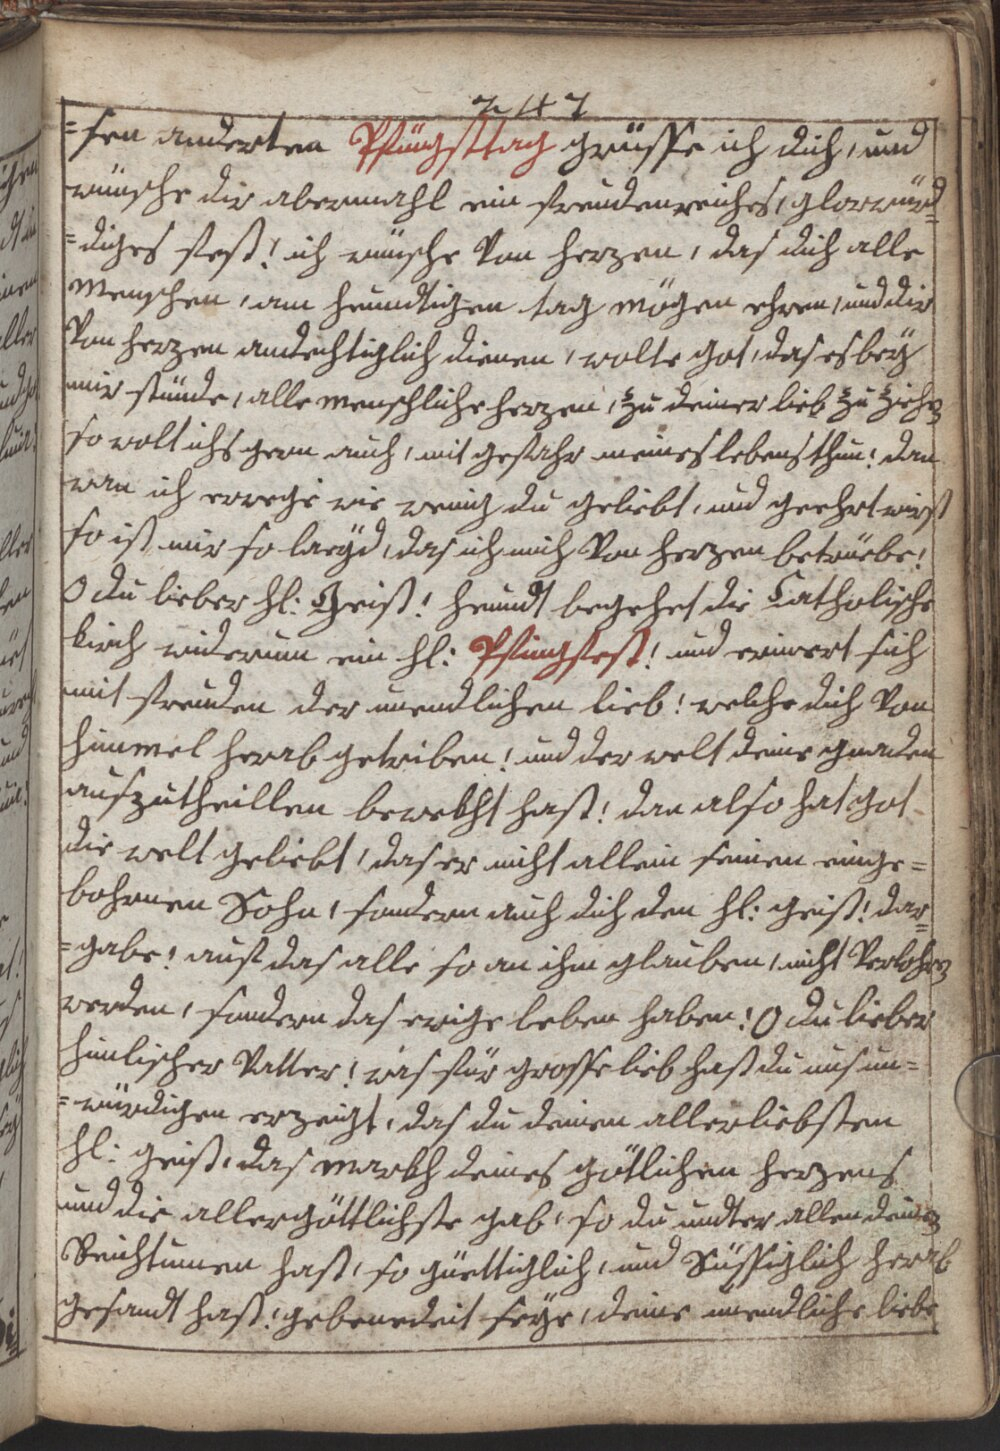 247
=sen anderten Pfingsttag grüsse ich dich, und
wünsche dir abermahl ein freudenreiches, glorwür=
=diges fest! ich wünsche Von herzen, das dich alle
Menschen, am heundtigen tag mögen ehren, und dir
Von herzen andechtiglich dienen, wolte got, das es beÿ
mir stünde, alle menschliche herzen, zu deiner lieb zu ziehen
so wolt ichs gern auch, mit gefahr meines lebens thun! dan
wan ich erwege wie wenig du geliebt, und geehrt wirst
so ist mir so laeÿd, das ich mich Von herzen betrüebe!
O du lieber hl: Geist! heundt begehet die Catholische
kirch widerum ein hl: Pfingstfest! und erinert sich
mit freuden der unendlichen lieb! welche dich Von
himmel herab getriben! und der welt deine gnaden
aufzutheillen bewekht hast! dan also hat got
die welt geliebt, das er nicht allein seinen einge=
bohrnen Sohn, sondern auch dich den hl: geist! dar=
=gabe! auf das alle so an ihm glauben, nicht Verlohren
werden, sondern das ewige leben haben! O du lieber
himlischer Vatter! was für grosse lieb hast du uns un=
=würdigen erzeigt, das du deinen allerliebsten
hl: geist, das markh deines götlichen herzens
und die allergöttlichste gab, so du undter allen deinen
Reichtumen hast, so güettiglich, und Süssiglich herab
gesandt hast! gebenedeit seÿe, deine unendliche liebe